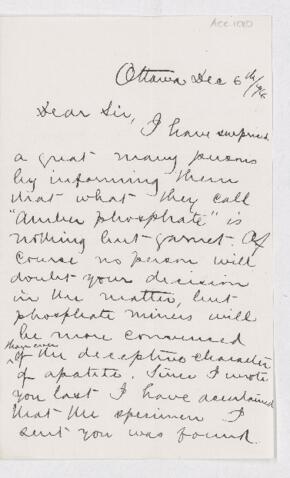 Acc 1080
Ottawa Dec 6th/76
Dear Sir,
I have surprised
a great many persons
by informing them
that what they call
"Amber phosphate" is
nothing but garnet. Of
course no person will
doubt your decision
in the matter, but
phosphate miners will
be more convinced
than ever
of the deceptive character
of apatite. Since I wrote
you last I have ascertained
that the specimen I
sent you was found